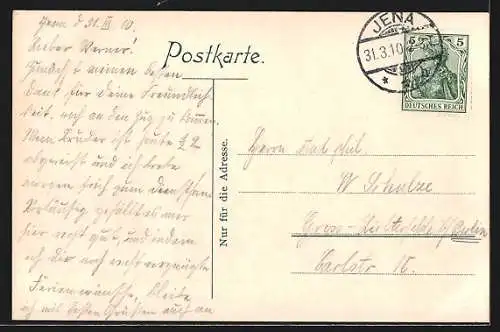 Jena d 31. III 10.
Lieber Werner!
Zunächst meinen besten
Dank für deine Freundlich-
keit, noch an den Zug zu kommen.
Mein Bruder ist heute
abgereist und ich trete
morgen früh zum Dienst an.
Vorläufig gefällt es mir
hier recht gut, und indem
ich dir noch recht vergnügte
Ferien wünsche, bleibe
ich mit besten Grüßen auch an
Postkarte.
Nur für die Adresse.
JENA
31.3.10
5 5
DEUTSCHES REICH
Herrn
W Schulze
Gross-Lichterfelde b/Berlin
Carlstr